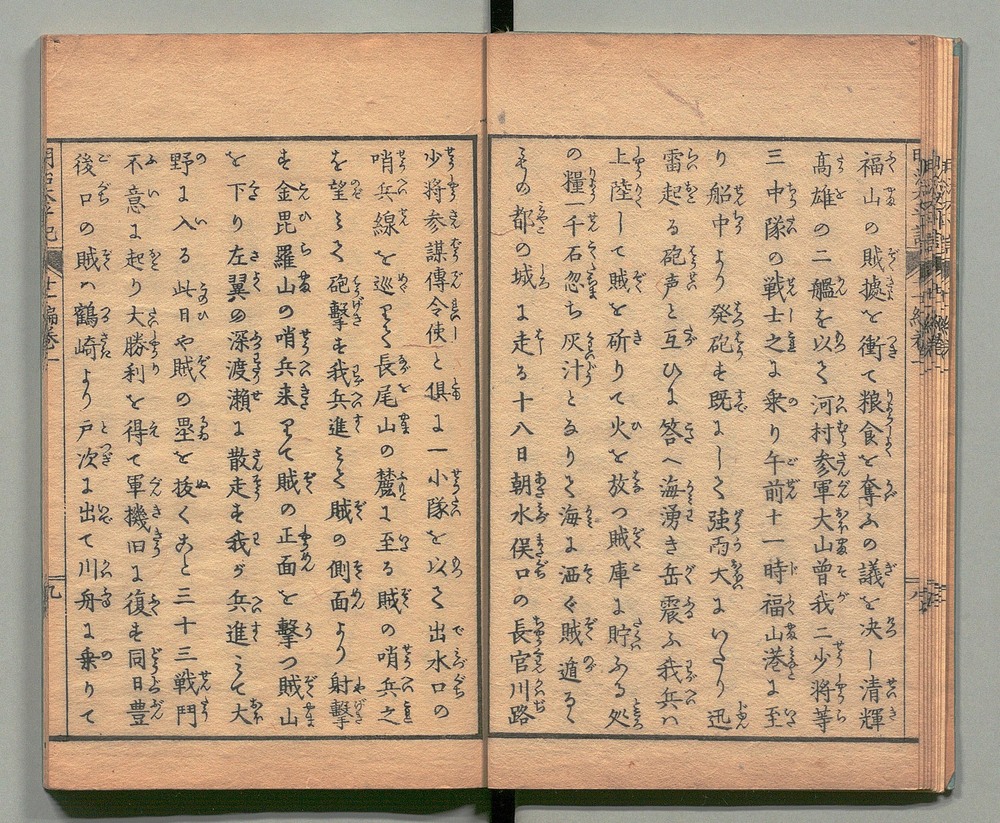 福山の賊據を衝て粮食を奪ふの議を决し清輝
髙雄の二艦を以て河村参軍大山曾我二少将等
三中隊の戦士之に乗り午前十一時福山港に至
り船中より発砲す既にして強雨大にいたり迅
雷起る砲声と互ひに答へ海湧き岳震ふ我兵ハ
上陸して賊を斫りて火を放つ賊庫に貯ふる処
の糧一千石忽ち灰汁となりて海に洒ぐ賊遁るゝ
もの都の城に走る十八日朝水俣口の長官川路
少将参謀傳令使と倶に一小隊を以て出水口の
哨兵線を巡りて長尾山の麓に至る賊の哨兵之
を望ミて砲撃す我兵進ミて賊の側面より射撃
す金毘羅山の哨兵来りて賊の正面を撃つ賊山
を下り左翼の深渡瀬に散走す我が兵進ミて大
野に入る此日や賊の塁を抜くこと三十三戦鬥
不意に起り大勝利を得て軍機旧に復す同日豊
後口の賊ハ鶴崎より戸次に出て川舟に乗りて
明治太平記 十一編巻一 九